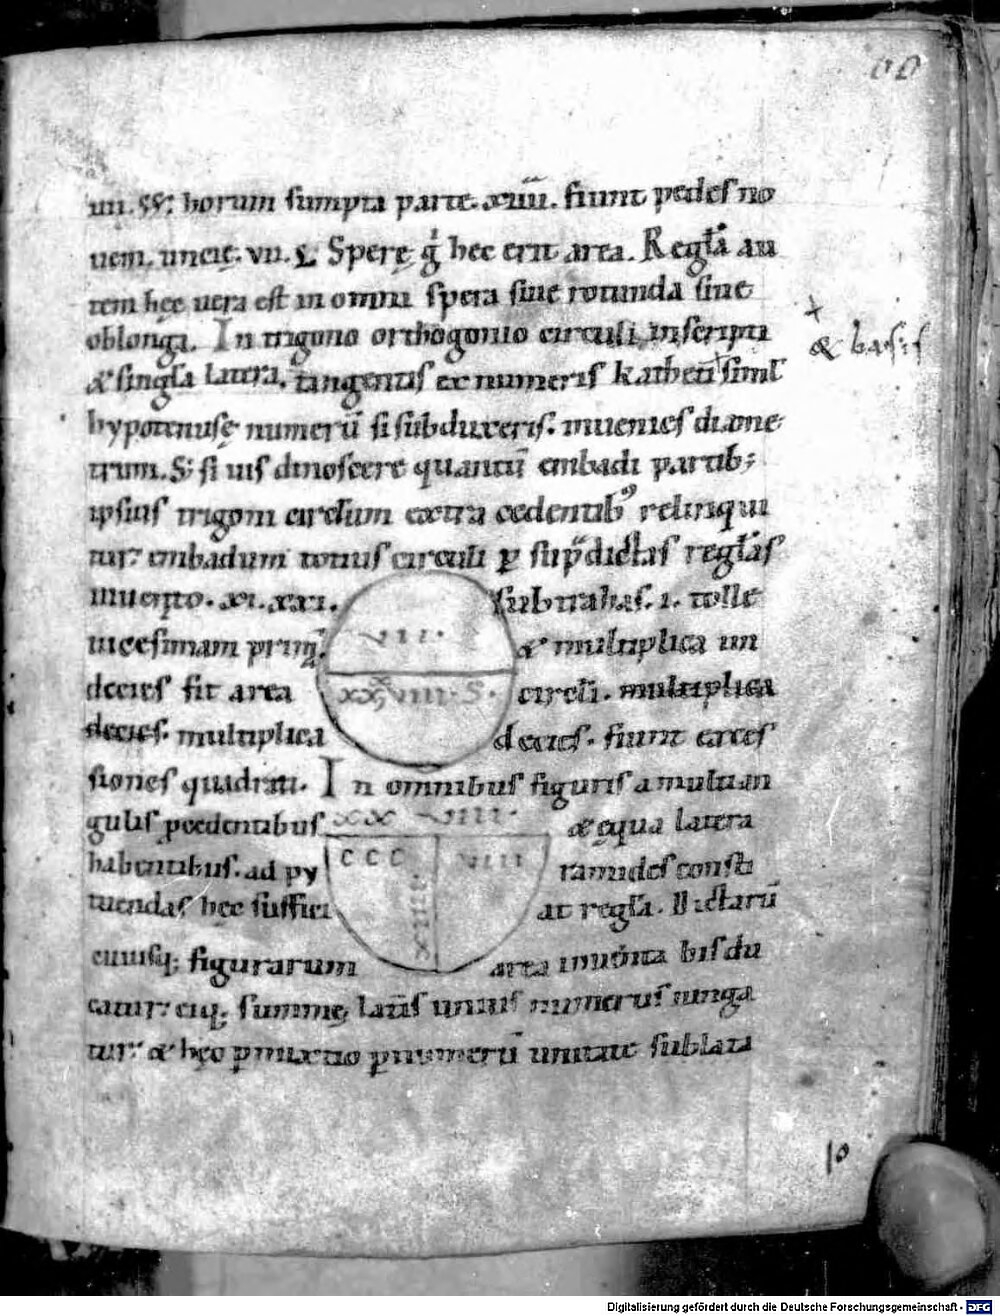 60
iiii. SS; horum sumpta parte. xiiii. fiunt pedes no
uem. uncię. vii. Sperę g̊ hec erit area. Regl̃a au
tem hęc uera est in omni spera siue rotunda siue
oblonga. In trigono orthogonio circuli inscripti
& singl̃a latera. tangentis ex numeris katheti simł
& basis
hypotenusę numerū si subduxeris. inuenies diame
trum. S; si uis dinoscere quantū embadi partib;
ipsius trigoni circłum extra cedentib᾽ relinqui
tur. embadum totius circuli p sup̃dictas regl̃as
inuento. xi. xxi. subtrahas. i. tolle
uicesimam primā & multiplica un
decies fit area circl̃i. multiplica
decies. multiplica decies. fiunt exces
siones quadrati. In omnibus figuris a multian
gulis pcedentibus & ęqua latera
habentibus. ad py ramides consti
tuendas hęc suffici at regl̃a. Dictarū
cuiusq; figurarum area inuenta bis du
catur. eiq; summę lat̃is unius numerus iunga
tur. & hęc pmixtio p numerū unitate sublata
VII.
S.
XX
CCC
10
Digitalisierung gefördert durch die Deutsche Forschungsgemeinschaft - DFG